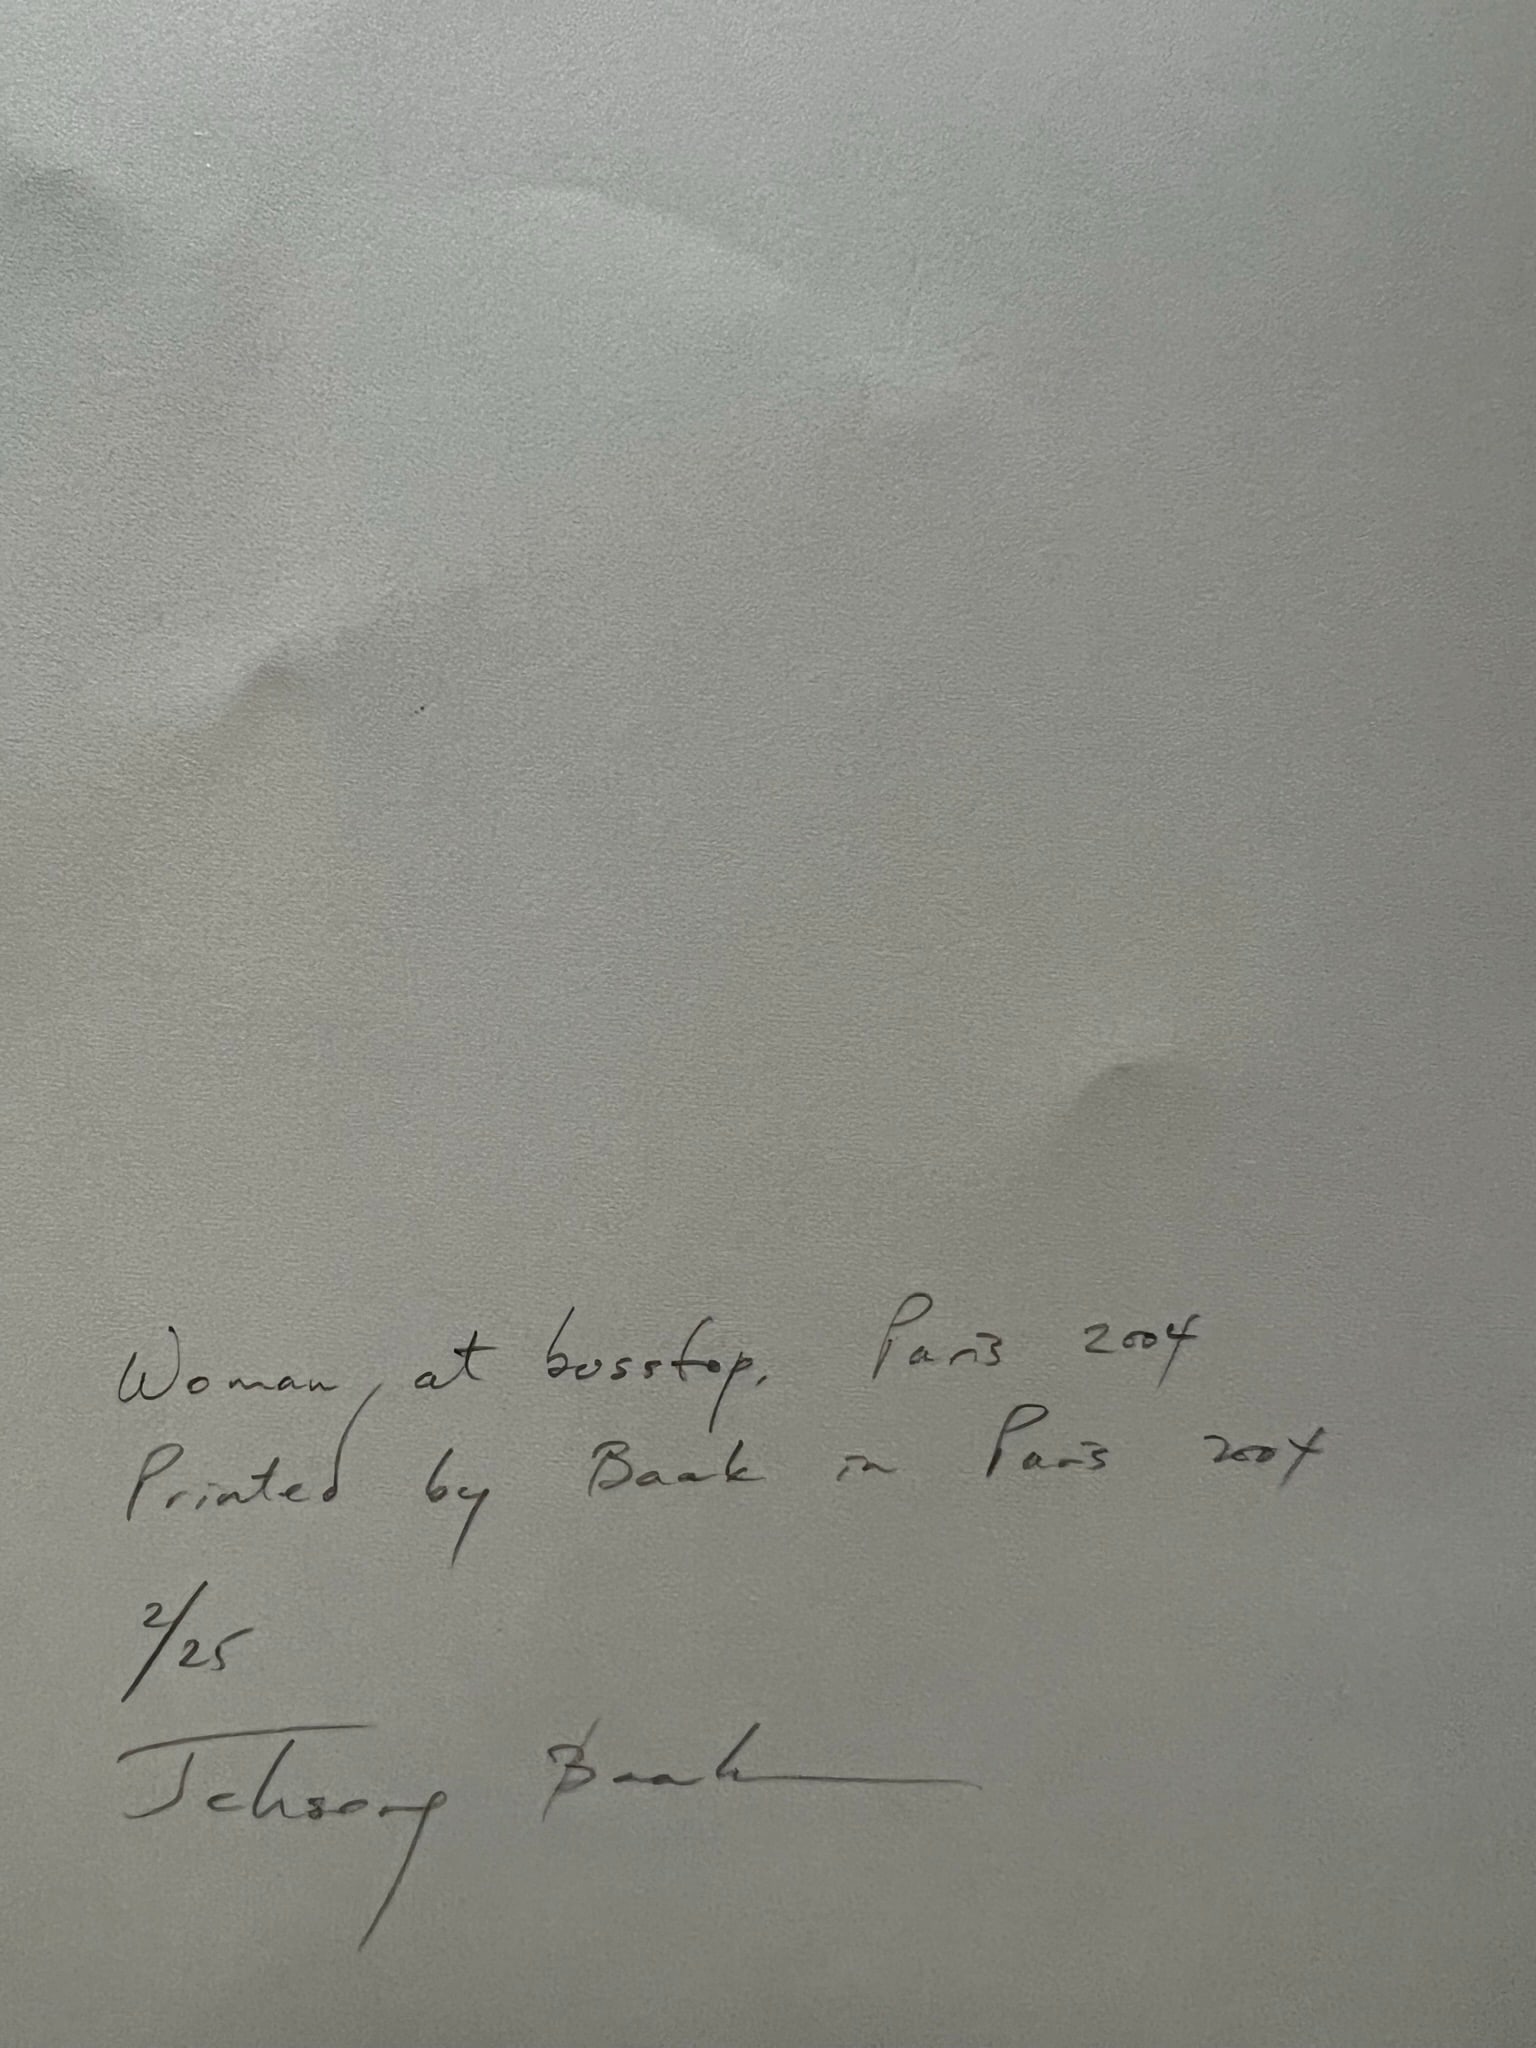 Woman at busstop, Paris 2004
Printed by Baak in Paris 2004
2/25
Jehsong Baak